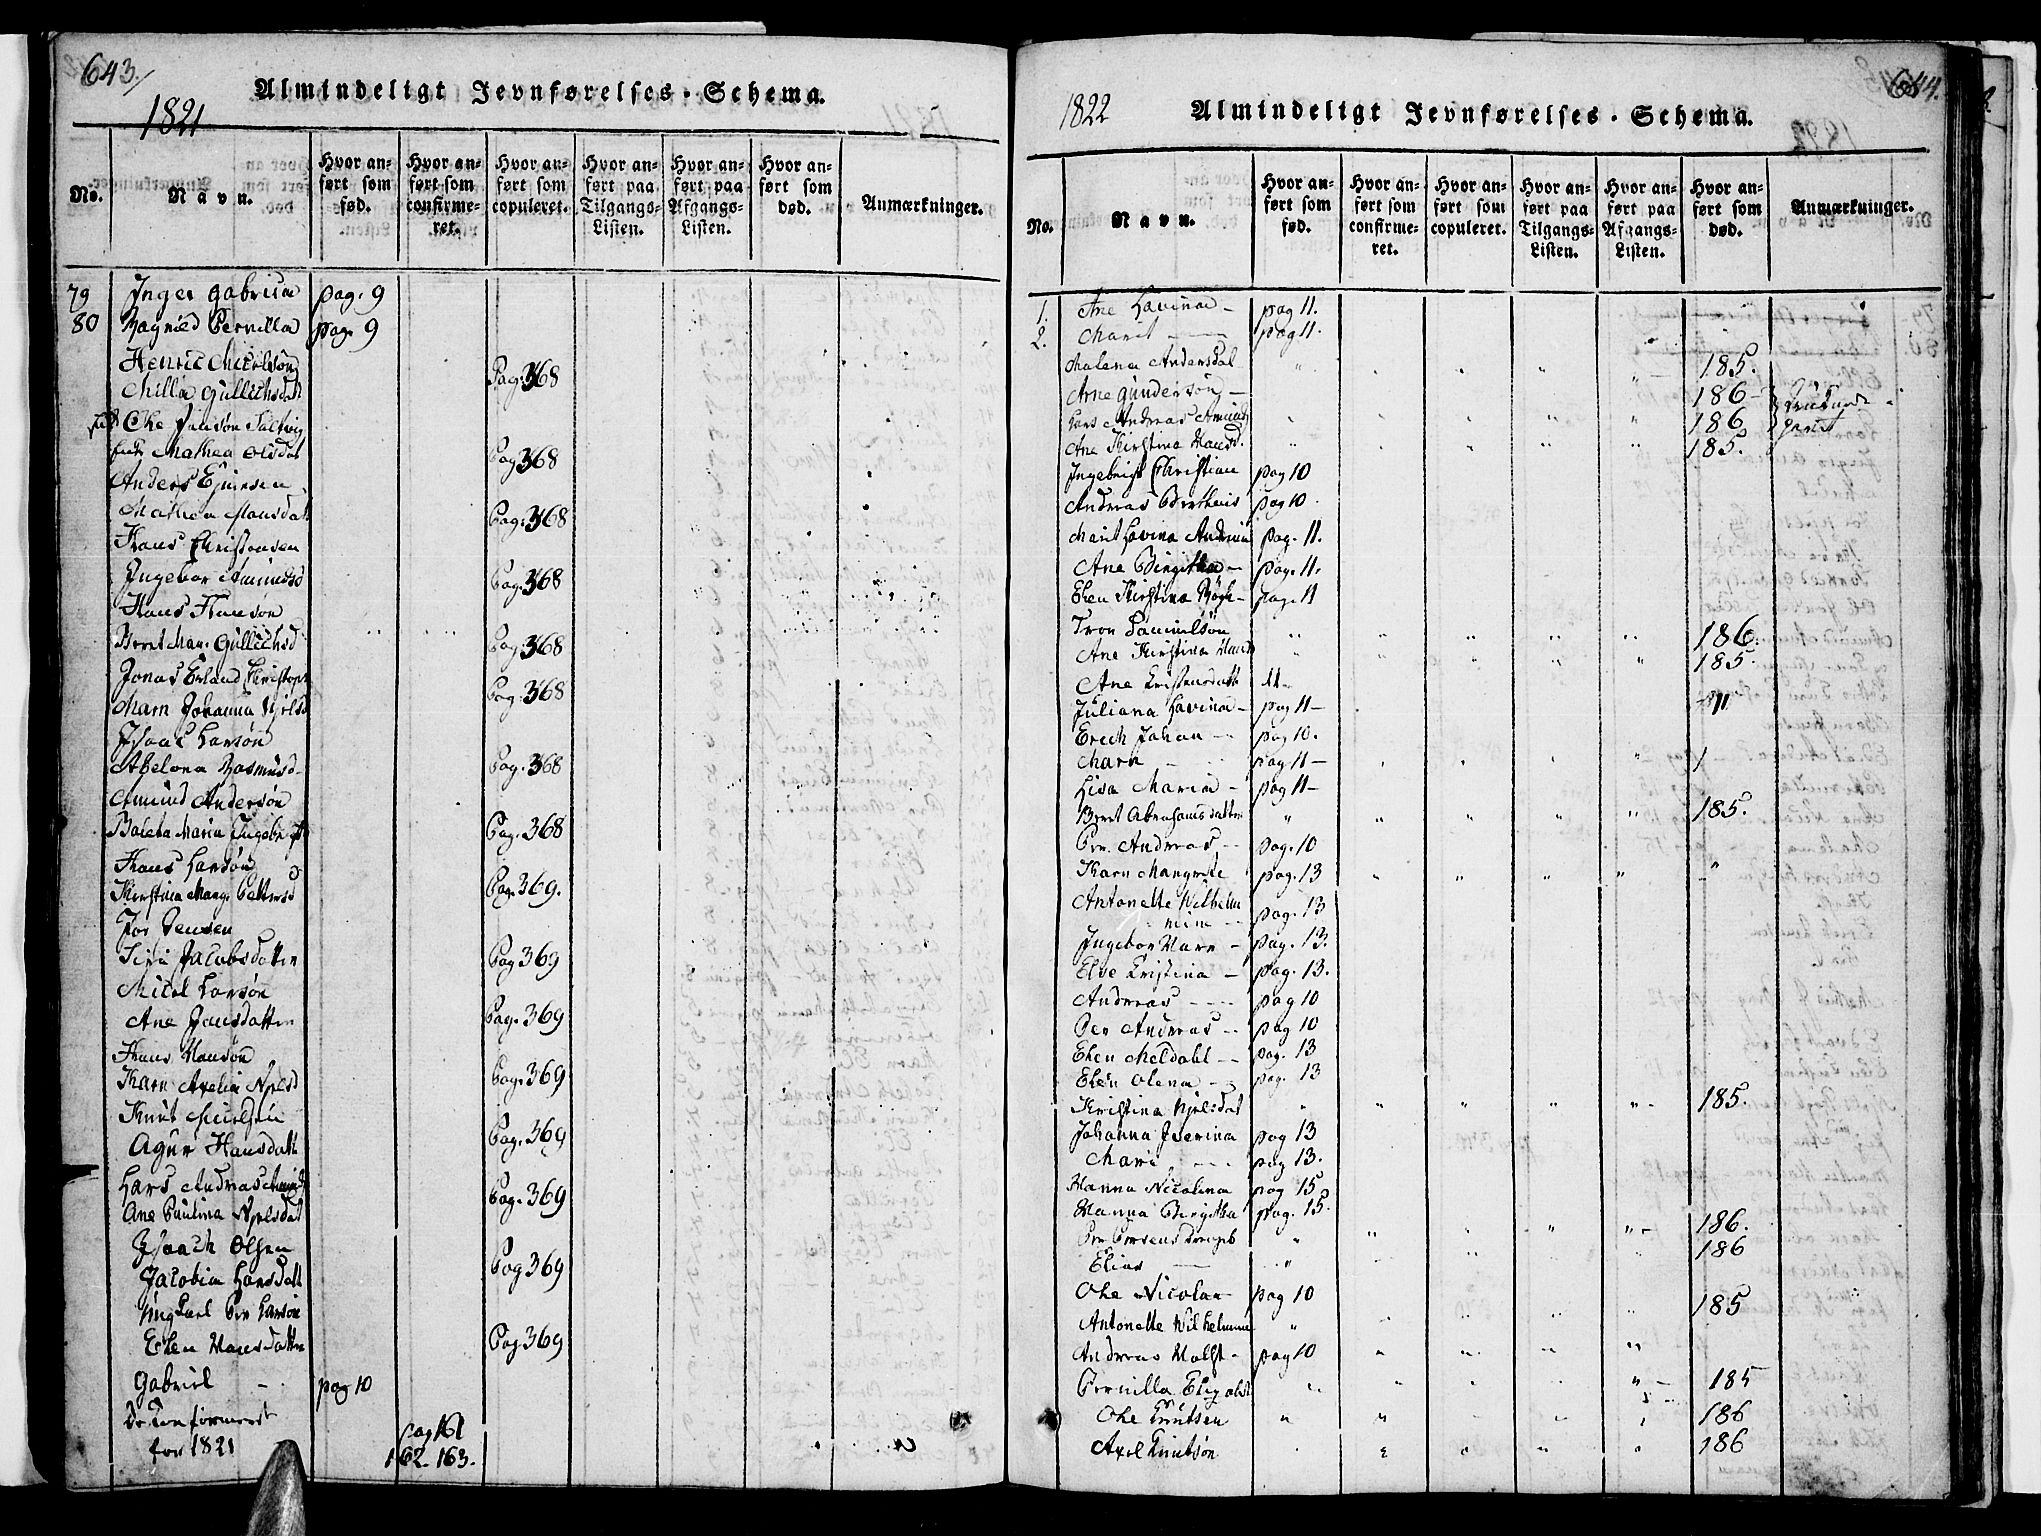 643.
Almindeligt Jevnførelses-Schema.
1821
No.
Navn.
Hvor anført som fød.
Hvor anført som confirmeret.
Hvor anført som copuleret.
Hvor anført paa Tilgangs-Listen.
Hvor anført paa Afgangs-Listen.
Hvor anført som død.
Anmærkninger.
79 Inger Gabriela pag. 9
80 Ragnild Pernilla pag. 9
Henric Nicolsøn
Milla Gullichsdatt Pag. 368
Ole Jansøn
Mathea Olsdat Pag 368
Anders
Mathea Hansdatt Pag. 368
Hans Christensen
Ingebor Amundsd Pag. 368
Hans Hansøn
Beret Mar. Gullichsd Pag. 368
Jonas Erland Christoph
Marn Johanna Njelsd Pag. 368
Isaac Larsøn
Abelona Rasmusd Pag. 368
Amund Andersøn
Maria Ingebrigt Pag. 368
Hans Larsøn
Kirstina Marg. Pettersd Pag. 369.
Jor Jensen
Siri Jacobsdatter Pag 369
Nicol Larsøn
Ane Jansdatter Pag. 369
Hans Hansøn
Karn Axelia Njelsd Pag. 369
Knut
Agur Hansdatt Pag. 369
Lars Andreas Amund
Ane Paulina Njelsdat Pag. 369
Isaach Olsen
Jacobia Larsdatt Pag 369
Ungkarl Per Larsøn
Elen Hansdatter Pag. 369
Gabriel pag 10
De Confirmerede
for 1821 pag 161
162. 163.
644.
1822
Almindeligt Jevnførelses-Schema.
No.
Navn.
Hvor anført som fød.
Hvor anført som confirmeret.
Hvor anført som copuleret.
Hvor anført paa Tilgangs-Listen.
Hvor anført paa Afgangs-Listen.
Hvor anført som død.
Anmærkninger.
1. Ane Lavina pag 11.
2. Marit pag 11.
Malena Andersdat 185.
Arne Gundersøn 186
Lars Andreas Amund 186
Ane Kirstina Hansd. 185.
Ingebrigt Christian pag 10
Andreas Bertheus pag 10
Marit Lovina Andrina pag. 11.
Ane Birgitha pag. 11.
Elen Kirstina pag. 11
Tron Danielsøn 186.
Ane Kirstina Hansd 185.
Ane Cristensdatt
Juliana Lavina pag 11
Erich Johan pag 10.
Marn pag 11
Lisa Maria pag 11
Beret Abrahamsdatter 185.
Per Andreas pag. 10
Karn Mangrete pag. 13
Antonette Wilhelmine pag. 13
Ingebor Marn pag. 13.
Else Cristina pag. 13.
Andreas pag 10
Per Andreas pag 10
Elen Meldahl pag. 13
Elen Olena pag. 13
Kristina Njelsdat 185.
Johanna Severina pag 13
Mari pag 13.
Hanna Nicolina pag 15
Hanna Birgitha pag. 15.
Per Persens 186.
Elias 186
Ole Nicolai pag 10
Antonette Wilhelmine 185
Andreas Holst pag 10
Pernilla 185
Ole Knutsen 186
Axel Knutsøn 186